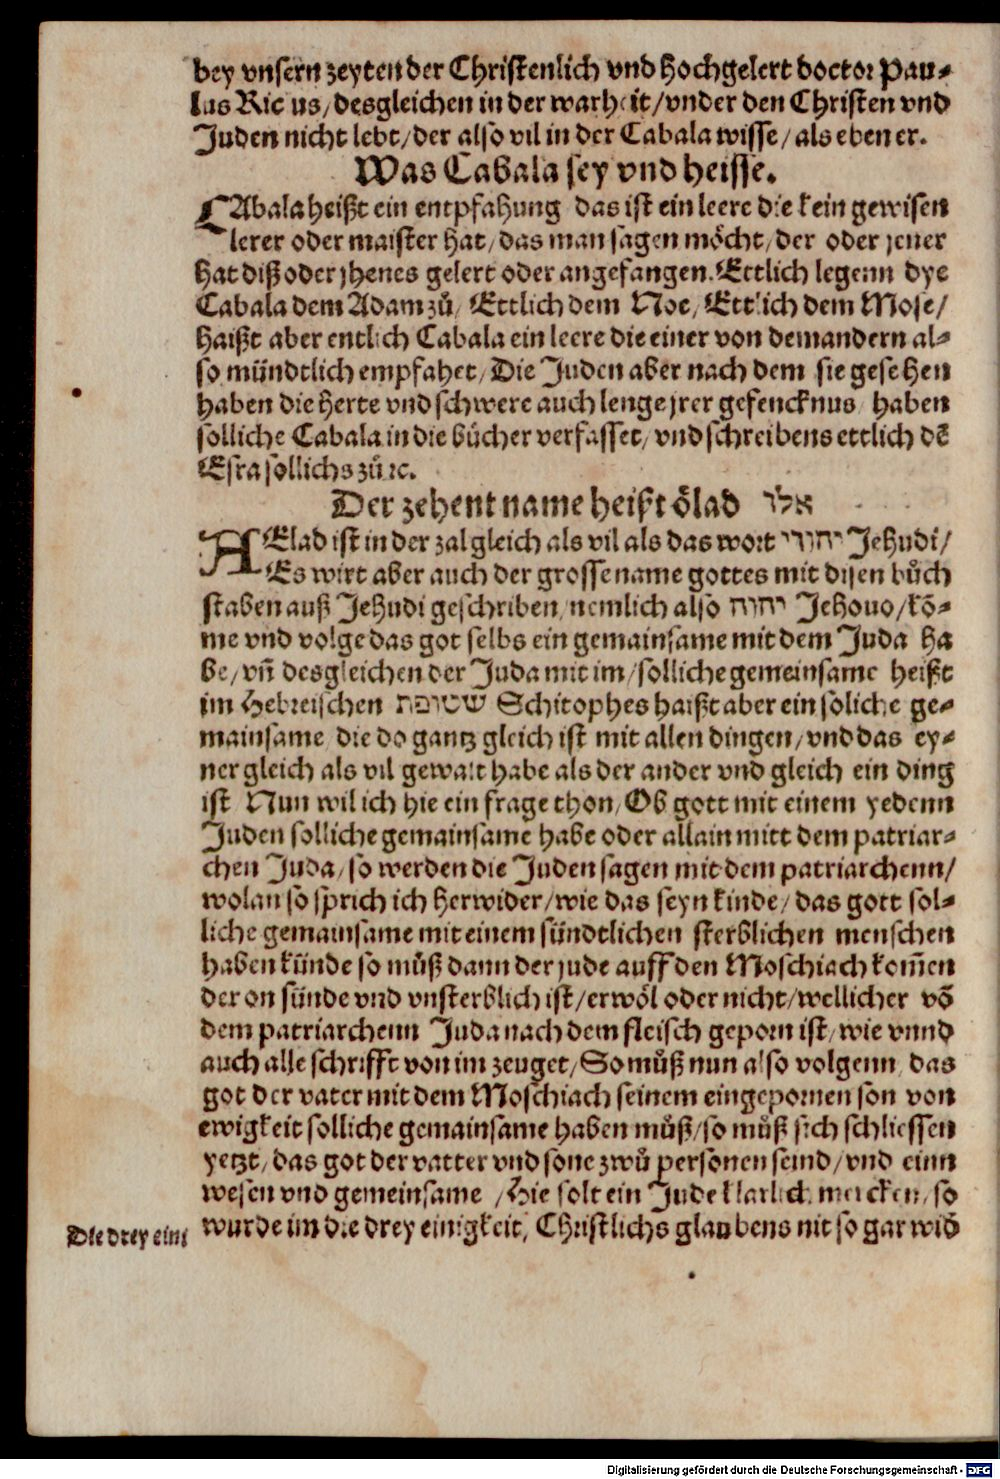 bey vnsern zeyten der Christenlich vnd hochgelert doctor Pau-
lus Ric us, desgleichen in der warheit/vnder den Christen vnd
Juden nicht lebt/der also vil in der Cabala wisse/als eben er.
Was Cabala sey vnd heisse.
CAbala heißt ein entpfahung das ist ein leere die kein gewisen
lerer oder maister hat/das man sagen möcht/der oder jener
hat diß oder jhenes gelert oder angefangen. Ettlich legenn dye
Cabala dem Adam zů/Ettlich dem Noe/Ettlich dem Mose/
haißt aber entlich Cabala ein leere die einer von dem andern al-
so mündtlich empfahet/Die Juden aber nach dem sie gesehen
haben die herte vnd schwere auch lenge jrer gefencknus haben
solliche Cabala in die bůcher verfasset/vnd schreibens ettlich dē
Esra sollichs zů ꝛc.
Der zehent name heißt ölad אלד
AElad ist in der zal gleich als vil als das wort יהודי Jehudi/
Es wirt aber auch der grosse name gottes mit disen bůch
staben auß Jehudi geschriben/nemlich also יהוה Jehouo/kō-
me vnd volge das got selbs ein gemainsame mit dem Juda ha
be/vñ desgleichen der Juda mit im/solliche gemeinsame heißt
im Hebreischen Schitophes haißt aber ein soliche ge-
mainsame die do gantz gleich ist mit allen dingen/vnd das ey-
ner gleich als vil gewalt habe als der ander vnd gleich ein ding
ist Nun wil ich hie ein frage thon/Ob gott mit einem yedenn
Juden solliche gemainsame habe oder allain mitt dem patriar-
chen Juda/so werden die Juden sagen mit dem patriarchenn/
wolan so sprich ich herwider/wie das seyn kinde/das gott sol-
liche gemainsame mit einem sündtlichen sterblichen menschen
haben künde so můß dann der jude auff den Moschiach kom̄en
der on sünde vnd vnsterblich ist/er wöl oder nicht/wellicher vō
dem patriarchenn Juda nach dem fleisch geporn ist/wie vnnd
auch alle schrifft von im zeuget/So můß nun also volgenn das
got der vater mit dem Moschiach seinem eingepornen son von
ewigkeit solliche gemainsame haben můß/so můß sich schliessen
yetzt/das got der vatter vnd sone zwů personen seind/vnd einn
wesen vnd gemeinsame /Hie solt ein Jude klarlich mercken/so
wurde im die drey einigkeit/Christlichs glaubens nit so gar widď
Die drey eini
Digitalisierung gefördert durch die Deutsche Forschungsgemeinschaft - DFG